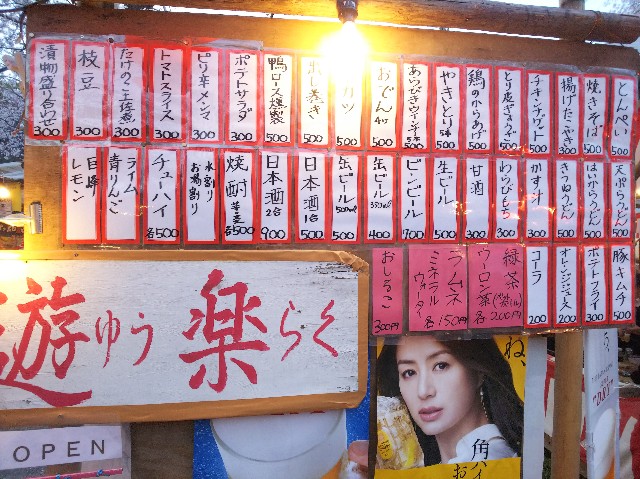 とんぺい 500
焼きそば 500
揚げたこやき 500
チキンナゲット 500
とり皮ぎょうざ 500
鶏のからあげ 500
やきとり 5本 500
あらびきウインナー 5本 500
おでん 4ケ 500
だし巻き 500
鴨ロース燻製 500
ポテトサラダ 300
ピリ辛メンマ 300
トマトスライス 300
たけのこ土佐煮 300
枝豆 300
漬物盛り合わせ 300
天ぷらうどん 500
はいからうどん 500
きつねうどん 500
かす汁 300
わらびもち 300
甘酒 300
生ビール 500
ビンビール 700
缶ビール 350ml 400
缶ビール 500ml 500
日本酒 1合 500
日本酒 2合 900
焼酎 芋麦 各500
水割り お湯割り
チューハイ 各500
ライム
青りんご
巨峰
レモン
豚キムチ 500
ポテトフライ 300
オレンジジュース 200
コーラ 200
緑茶
ウーロン茶 各200円
ラムネ
ミネラルウォーター 各150円
おしるこ 300円
遊ゆう楽らく
ね、
角ハイ
お
OPEN